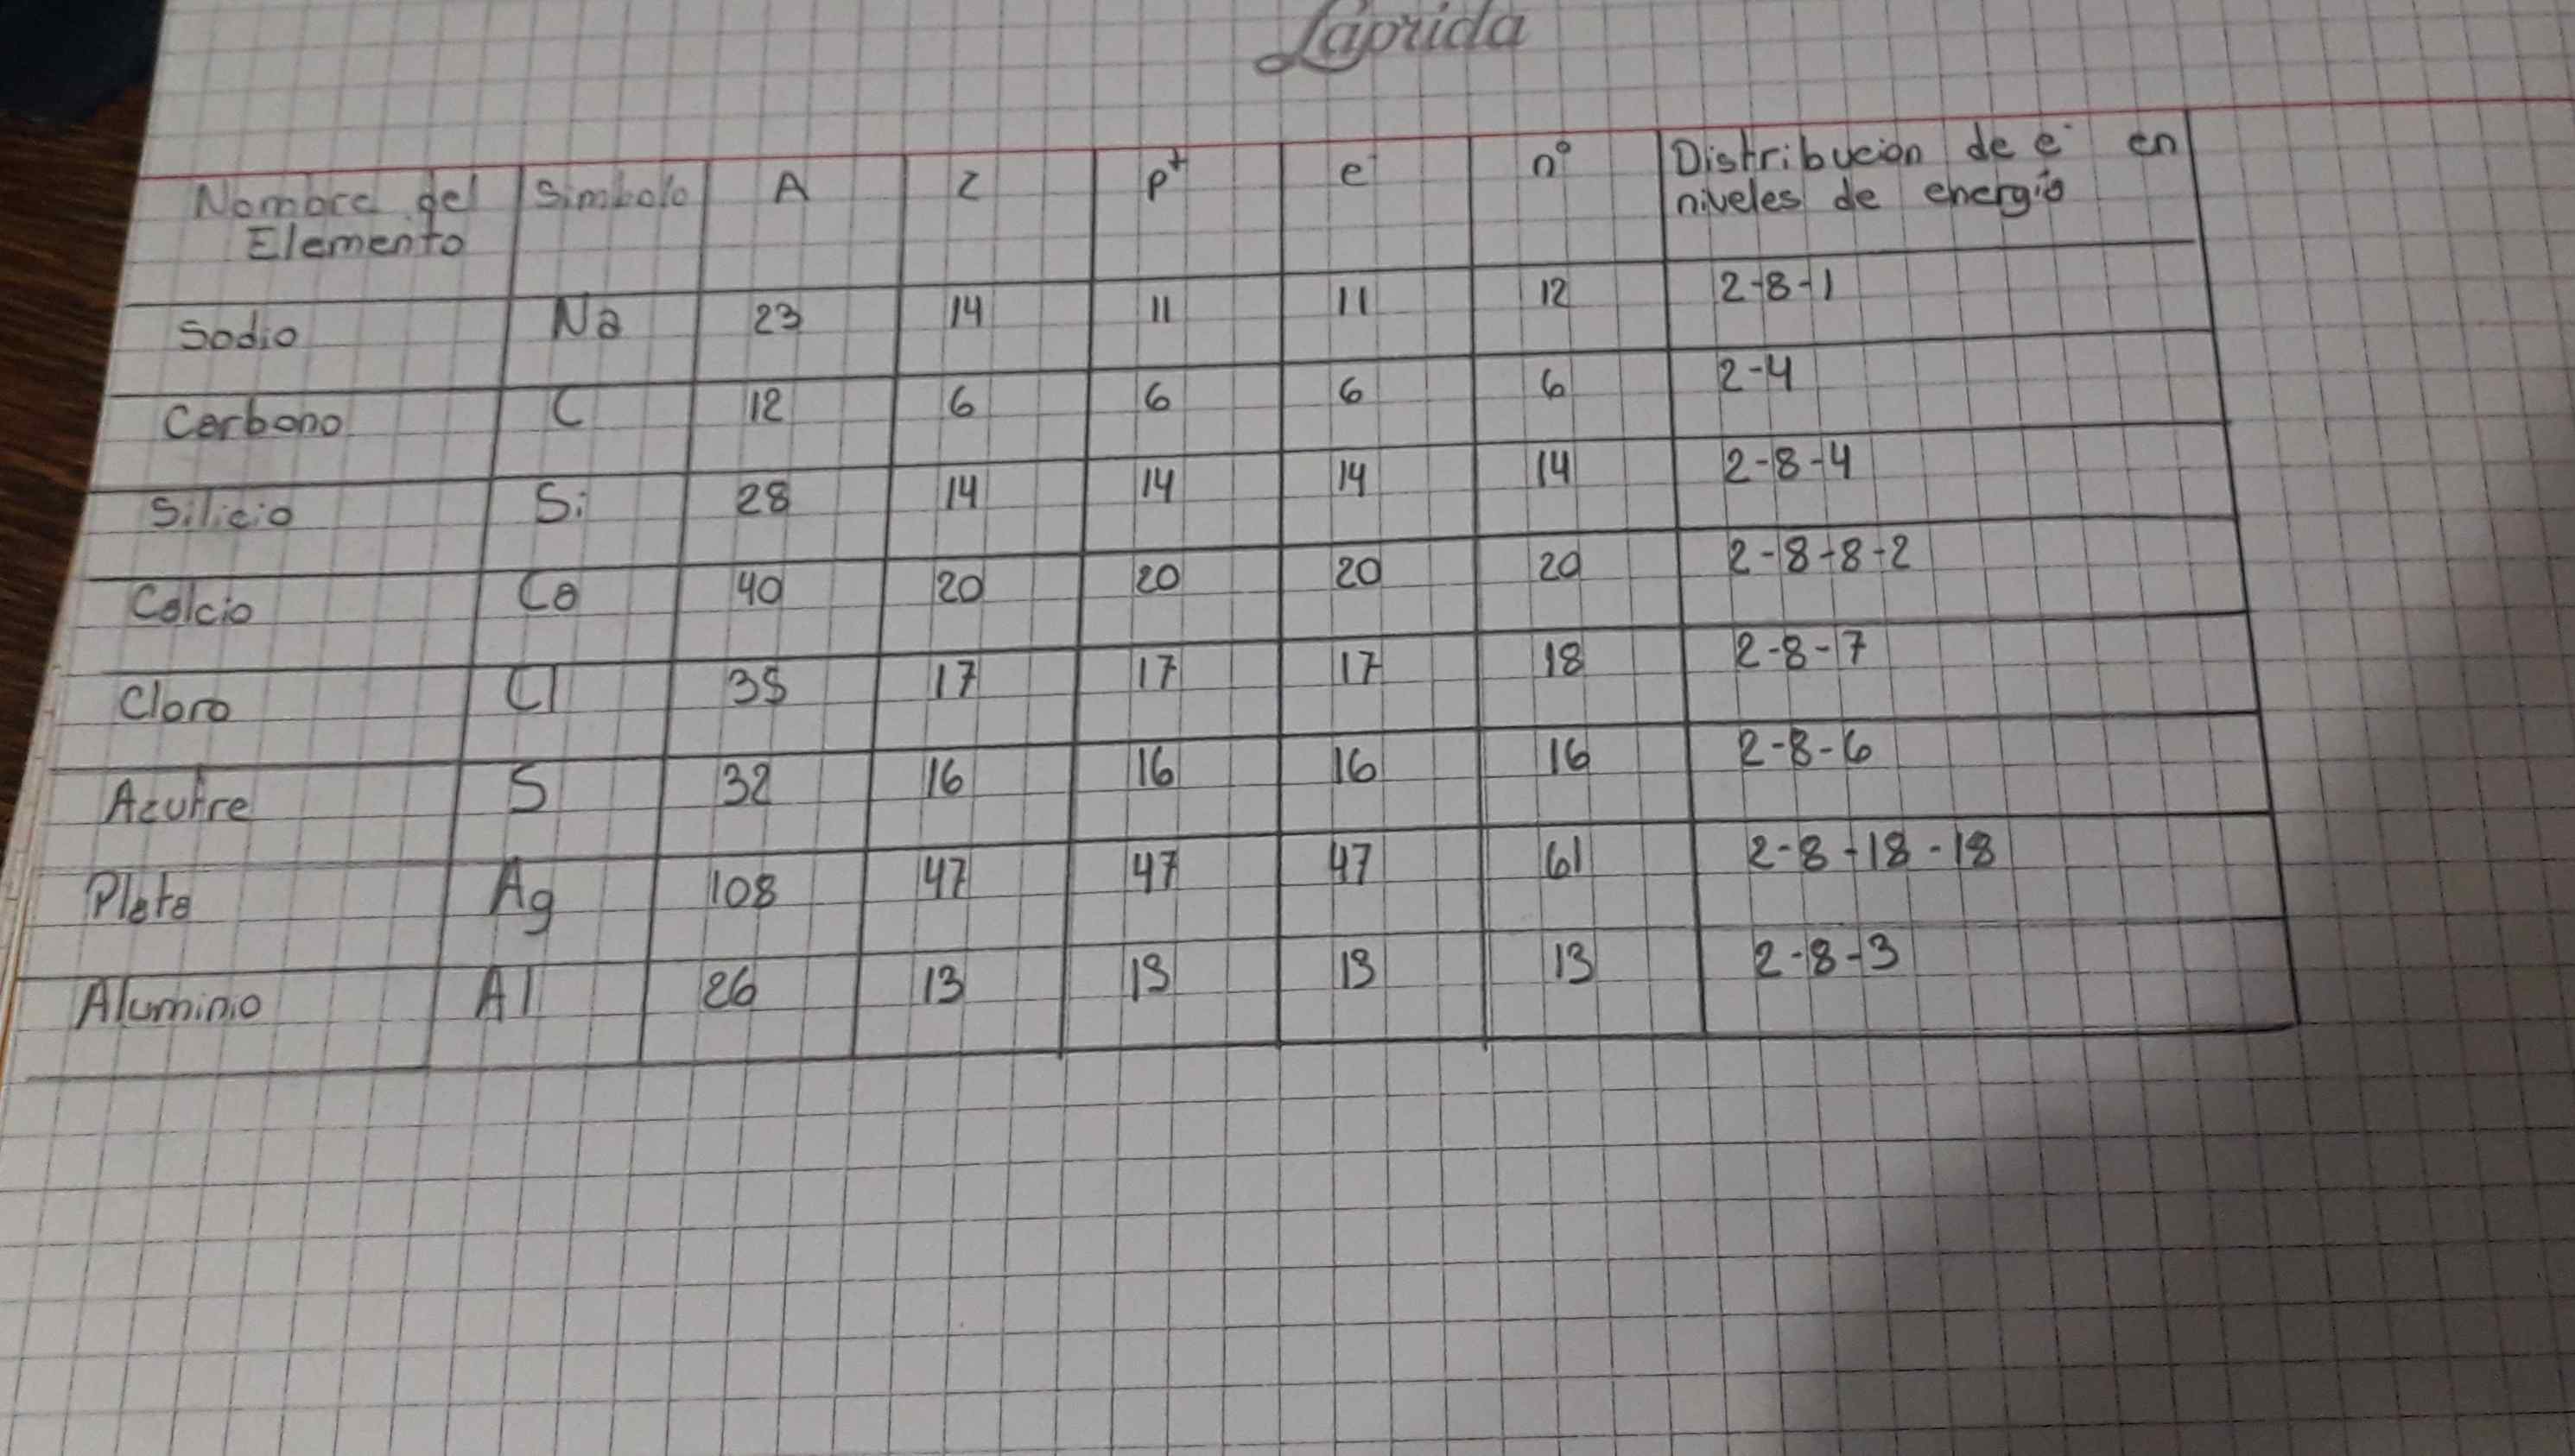 Laprida
Nombre del Elemento Simbolo A Z p+ e- n° Distribución de e- en niveles de energía
Sodio Na 23 14 11 11 12 2-8-1
Carbono C 12 6 6 6 6 2-4
Silicio Si 28 14 14 14 14 2-8-4
Calcio Ca 40 20 20 20 20 2-8-8-2
Cloro Cl 35 17 17 17 18 2-8-7
Azufre S 32 16 16 16 16 2-8-6
Plata Ag 108 47 47 47 61 2-8-18-18
Aluminio Al 26 13 13 13 13 2-8-3